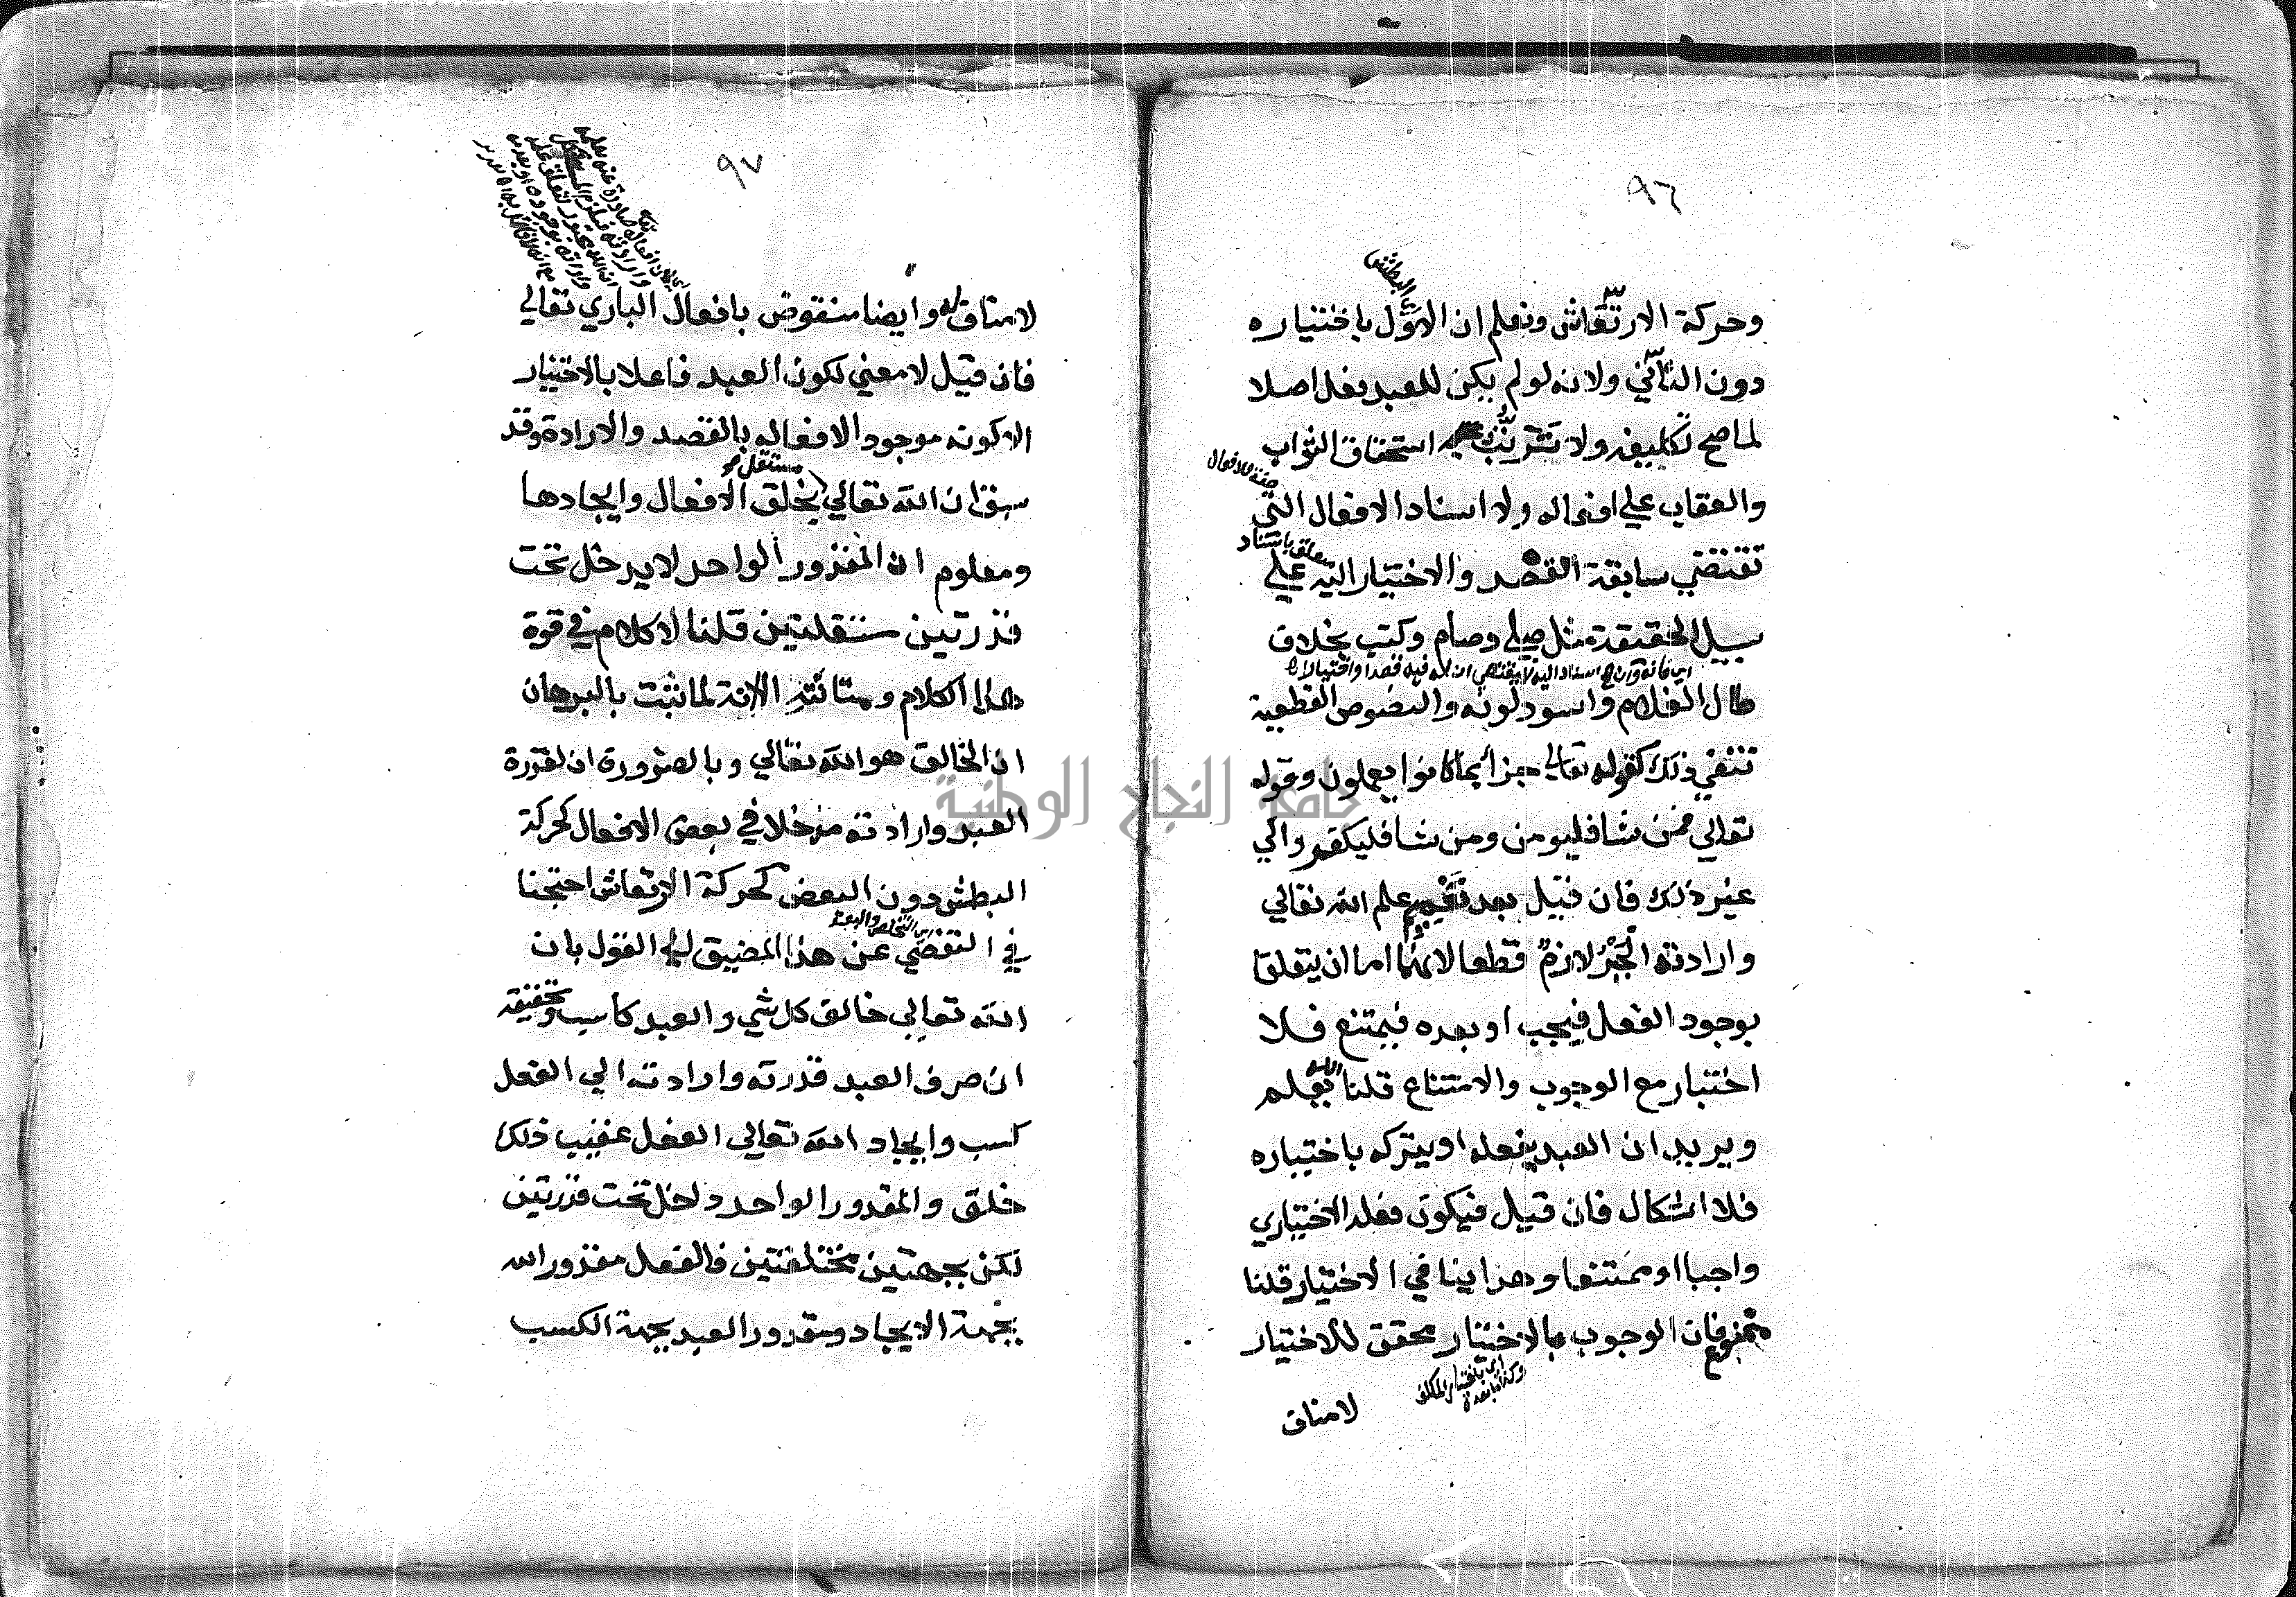 ٩٦
البطش
وحركة الارتعاش ونعلم ان الاول باختياره
دون الثاني ولانه لو لم يكن للعبد فعل اصلا
لما صح تكليفه ولا تترتب استحقاق الثواب
صفة للافعال
والعقاب علي افعاله ولا اسناد الافعال التي
متعلق باسناد
تقتضي سابقة القصد والاختيار اليه علي
سبيل الحقيقة مثل صلي وصام وكتب بخلاف
طال الغلام واسود لونه والنصوص القطعية
تنفي ذلك كقوله تعالي جزا بما كانوا يعملون وقوله
تعالي فمن شا فليومن ومن شا فليكفر والي
غير ذلك فان قيل بعد تعميم علم الله تعالي
وارادته الجبر لازم قطعا لانهما اما ان يتعلقا
بوجود الفعل فيجب او بعده فيمتنع فلا
اختيار مع الوجوب والامتناع قلنا يعلم
ويريد ان العبد يفعله او يتركه باختياره
فلا اشكال فان قيل فيكون فعله الاختياري
واجبا او ممتنعا وهذا ينافي الاختيار قلنا
ممنوع فان الوجوب بالاختيار محقق للاختيار
لامناف
٩٧
لامناف له وايضا منقوض بافعال الباري تعالي
فان قيل لا معني لكون العبد فاعلا بالاختيار
الا كونه موجود الافعاله بالقصد والارادة وقد
مستقل
سبق ان الله تعالي بخلق الافعال وايجادها
ومعلوم ان المقدور الواحد لا يدخل تحت
قدرتين مستقلتين قلنا لا كلام في قوة
هذا الكلام ومتانته الا انه لما ثبت بالبرهان
ان الخالق هو الله تعالي وبالضرورة ان لقدرة
العبد وارادته مدخلا في بعض الافعال كحركة
البطش دون البعض كحركة الارتعاش احتجنا
اي التخلص والبعد
في التفصي عن هذا المضيق الي القول بان
الله تعالي خالق كل شي والعبد كاسب وتحقيقه
ان صرف العبد قدرته وارادته الي الفعل
كسب وايجاد الله تعالي الفعل عقيب ذلك
خلق والمقدور الواحد دلخل تحت قدرتين
لكن بجهتين مختلفتين فالفعل مقدور الله
بجهة الايجاد ومقدور العبد بجهة الكسب
جامعة النجاح الوطنية